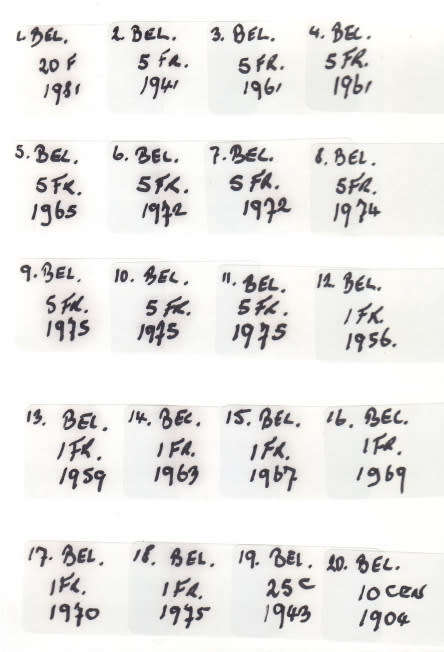 1. BEL.
20 F
1981
2. BEL.
5 FR.
1941
3. BEL.
5 FR.
1961
4. BEL.
5 FR.
1961
5. BEL.
5 FR.
1965
6. BEL.
5 FR.
1972
7. BEL.
5 FR.
1972
8. BEL.
5 FR.
1974
9. BEL.
5 FR.
1975
10. BEL.
5 FR.
1975
11. BEL.
5 FR.
1975
12. BEL.
1 FR.
1956.
13. BEL.
1 FR.
1959
14. BEL.
1 FR.
1963
15. BEL.
1 FR.
1967
16. BEL.
1 FR.
1969
17. BEL.
1 FR.
1970
18. BEL.
1 FR.
1975
19. BEL.
25 C
1943
20. BEL.
10 CEN
1904